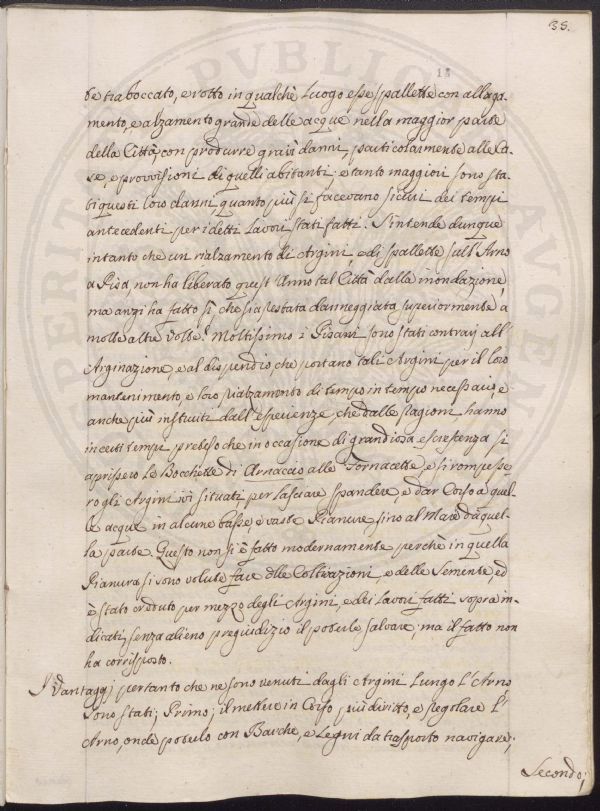 35.
18
te traboccato, e rotto in qualche Luogo esse spallette con allaga-
mento, e alzamento grande delle acque nella maggior parte
della Città, con produrre gravi danni, particolarmente alle Ca-
se, e provvisioni di quelli abitanti, e tanto maggiori sono sta-
ti questi loro danni quanto più si facevano sicuri dei tempi
antecedenti per i detti Lavori stati fatti. S'intende dunque
intanto che un rialzamento di Argini, e di spallette sull'Arno
a Pisa, non ha liberato quest'Anno tal Città dalla inondazione,
ma anzi ha fatto sì, che sia restata danneggiata superiormente a
molte altre volte. Moltissimo i Pisani sono stati contrarj all'
Arginazione, e al dispendio che portano tali Argini per il loro
mantenimento e loro rialzamento di tempo in tempo necessario, e
anche più instruiti dall'esperienze, che dalle ragioni hanno
in certi tempi preteso che in occasione di grandiosa escrescenza si
aprissero Le Bocchette di Arnaccio alle Fornacette, e si rompesse
ro gli Argini ivi situati per lasciare spandere, e dar Corso a quel-
le acque in alcune basse, e vaste Pianure sino al Mare da quel-
la parte. Questo non si è fatto modernamente perchè in quella
Pianura si sono volute fare delle Coltivazioni, e delle Semente, ed
è stato creduto per mezzo degli Argini, e dei Lavori fatti sopra in-
dicati, senza alieno pregiudizio il poterle salvare, ma il fatto non
ha corrisposto.
I Vantaggj pertanto che ne sono venuti dagli Argini Lungo L'Arno,
sono stati; Primo; il mettere in Corso più diritto, e regolare L'
Arno, onde poterlo con Barche, e Legni da trasporto navigare;
Secondo;